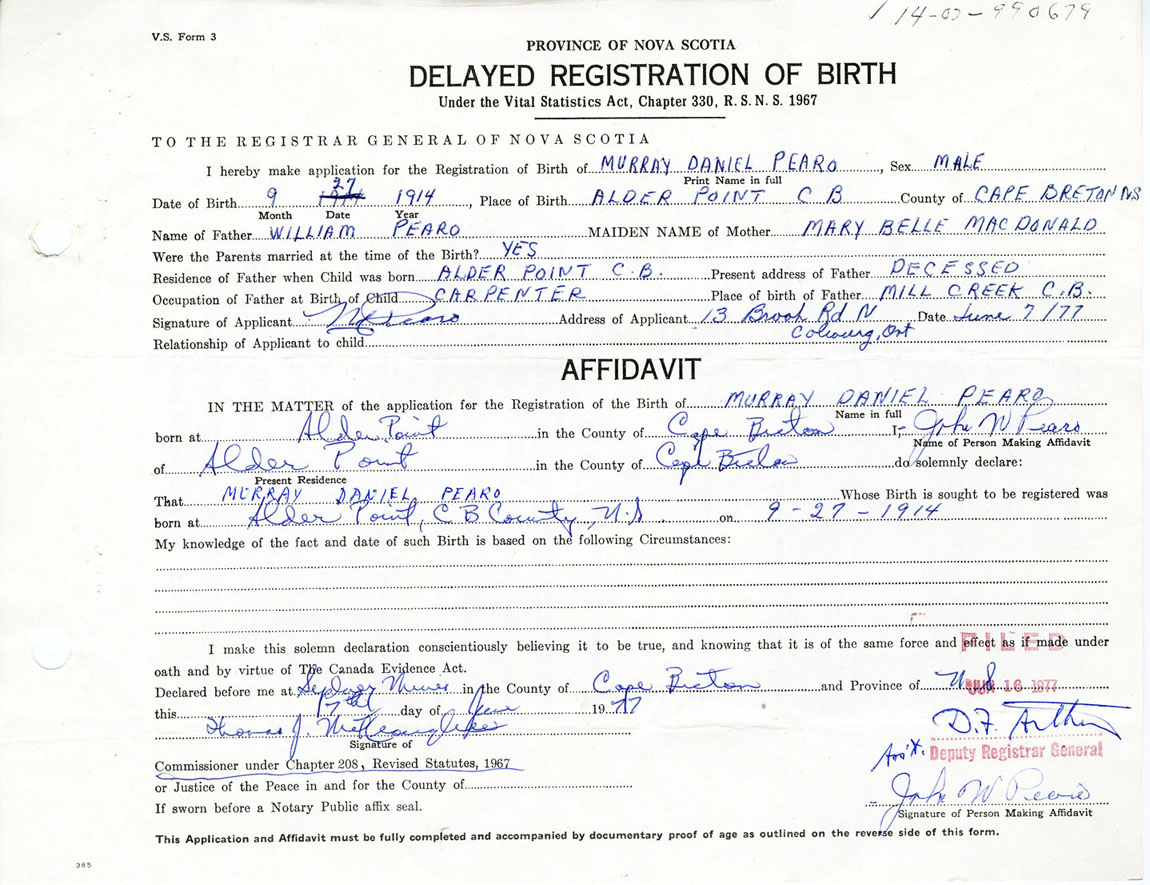 14-02-990679
V.S. Form 3
PROVINCE OF NOVA SCOTIA
DELAYED REGISTRATION OF BIRTH
Under the Vital Statistics Act, Chapter 330, R.S.N.S. 1967
TO THE REGISTRAR GENERAL OF NOVA SCOTIA
I hereby make application for the Registration of Birth of MURRAY DANIEL PEARO, Sex MALE
Print Name in full
Date of Birth 9 27 1914, Place of Birth ALDER POINT C B County of CAPE BRETON NS
Month Date Year
Name of Father WILLIAM PEARO MAIDEN NAME of Mother MARY BELLE MACDONALD
Were the Parents married at the time of the Birth? YES
Residence of Father when Child was born ALDER POINT C.B. Present address of Father DECESSED
Occupation of Father at Birth of Child CARPENTER Place of birth of Father MILL CREEK C.B.
Signature of Applicant Pearo Address of Applicant 13 Brook Rd N Date June 7/77
Cobourg, Ont
Relationship of Applicant to child
AFFIDAVIT
IN THE MATTER of the application for the Registration of the Birth of MURRAY DANIEL PEARO
Name in full
born at Alder Point in the County of Cape Breton I, John W Pearo
Name of Person Making Affidavit
of Alder Point in the County of Cape Breton do solemnly declare:
Present Residence
That MURRAY DANIEL PEARO Whose Birth is sought to be registered was
born at Alder Point, C B County, N.S. on 9-27-1914
My knowledge of the fact and date of such Birth is based on the following Circumstances:
I make this solemn declaration conscientiously believing it to be true, and knowing that it is of the same force and effect as if made under
FILED
oath and by virtue of The Canada Evidence Act.
Declared before me at Sydney Mines in the County of Cape Breton and Province of N.S.
JUN 16 1977
this day of June 1977
Thomas J.
Signature of
D.F. Arthur
Ass't. Deputy Registrar General
Commissioner under Chapter 208, Revised Statutes, 1967
or Justice of the Peace in and for the County of
John W Pearo
If sworn before a Notary Public affix seal.
Signature of Person Making Affidavit
This Application and Affidavit must be fully completed and accompanied by documentary proof of age as outlined on the reverse side of this form.
385